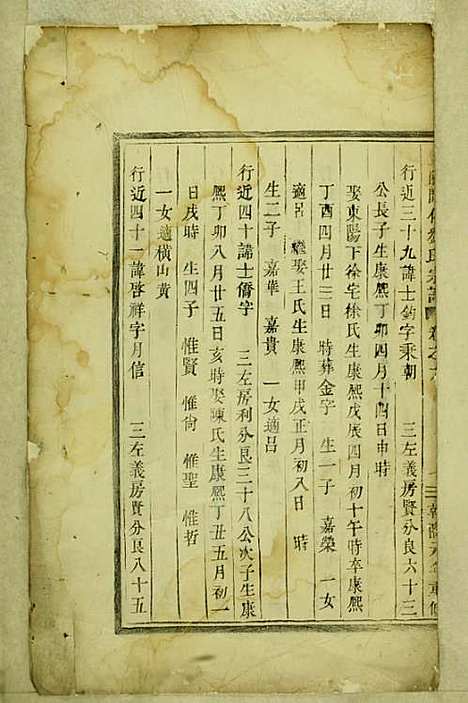 行近三十九諱士鈞字秉朝 三左義房賢分良六十三
公長子生康熙丁卯四月十四日申時
娶東陽下徐宅徐氏生康熙戊辰四月初十午時卒康熙
丁酉四月廿三日 時葬金字 生一子 嘉榮 一女
適呂 繼娶王氏生康熙甲戌正月初八日 時
生二子 嘉華 嘉貴 一女適呂
行近四十諱士僑字 三左房利分良三十八公次子生康
熙丁卯八月廿五日亥時娶陳氏生康熙丁丑五月初一
日戌時 生四子 惟賢 惟尙 惟聖 惟哲
一女適橫山黄
行近四十一諱啓祥字月信 三左義房賢分良八十五